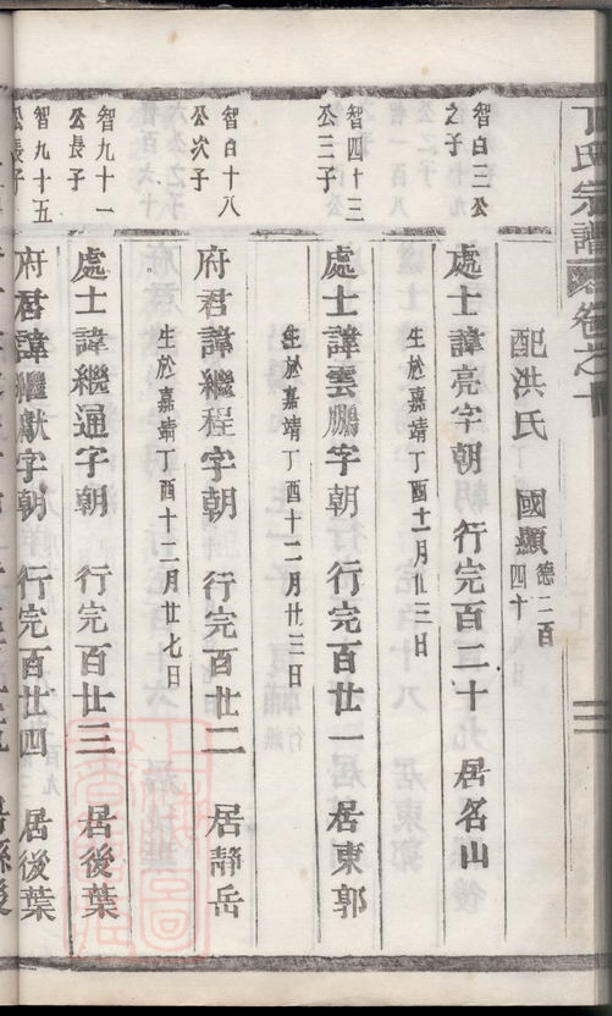 丁氏宗譜 卷之十
配洪氏 國顯 德二百四十
智白三公之子
處士諱亮字朝 行完百二十 居名山
生於嘉靖丁酉十一月廿三日
智四十三公三子
處士諱雲鵬字朝 行完百廿一 居東郭
生於嘉靖丁酉十二月廿三日
智白十八公次子
府君諱繼程字朝 行完百廿二 居靜岳
生於嘉靖丁酉十二月廿七日
智九十一公長子
處士諱繼通字朝 行完百廿三 居後葉
智九十五公長子
府君諱繼猷字朝 行完百廿四 居後葉